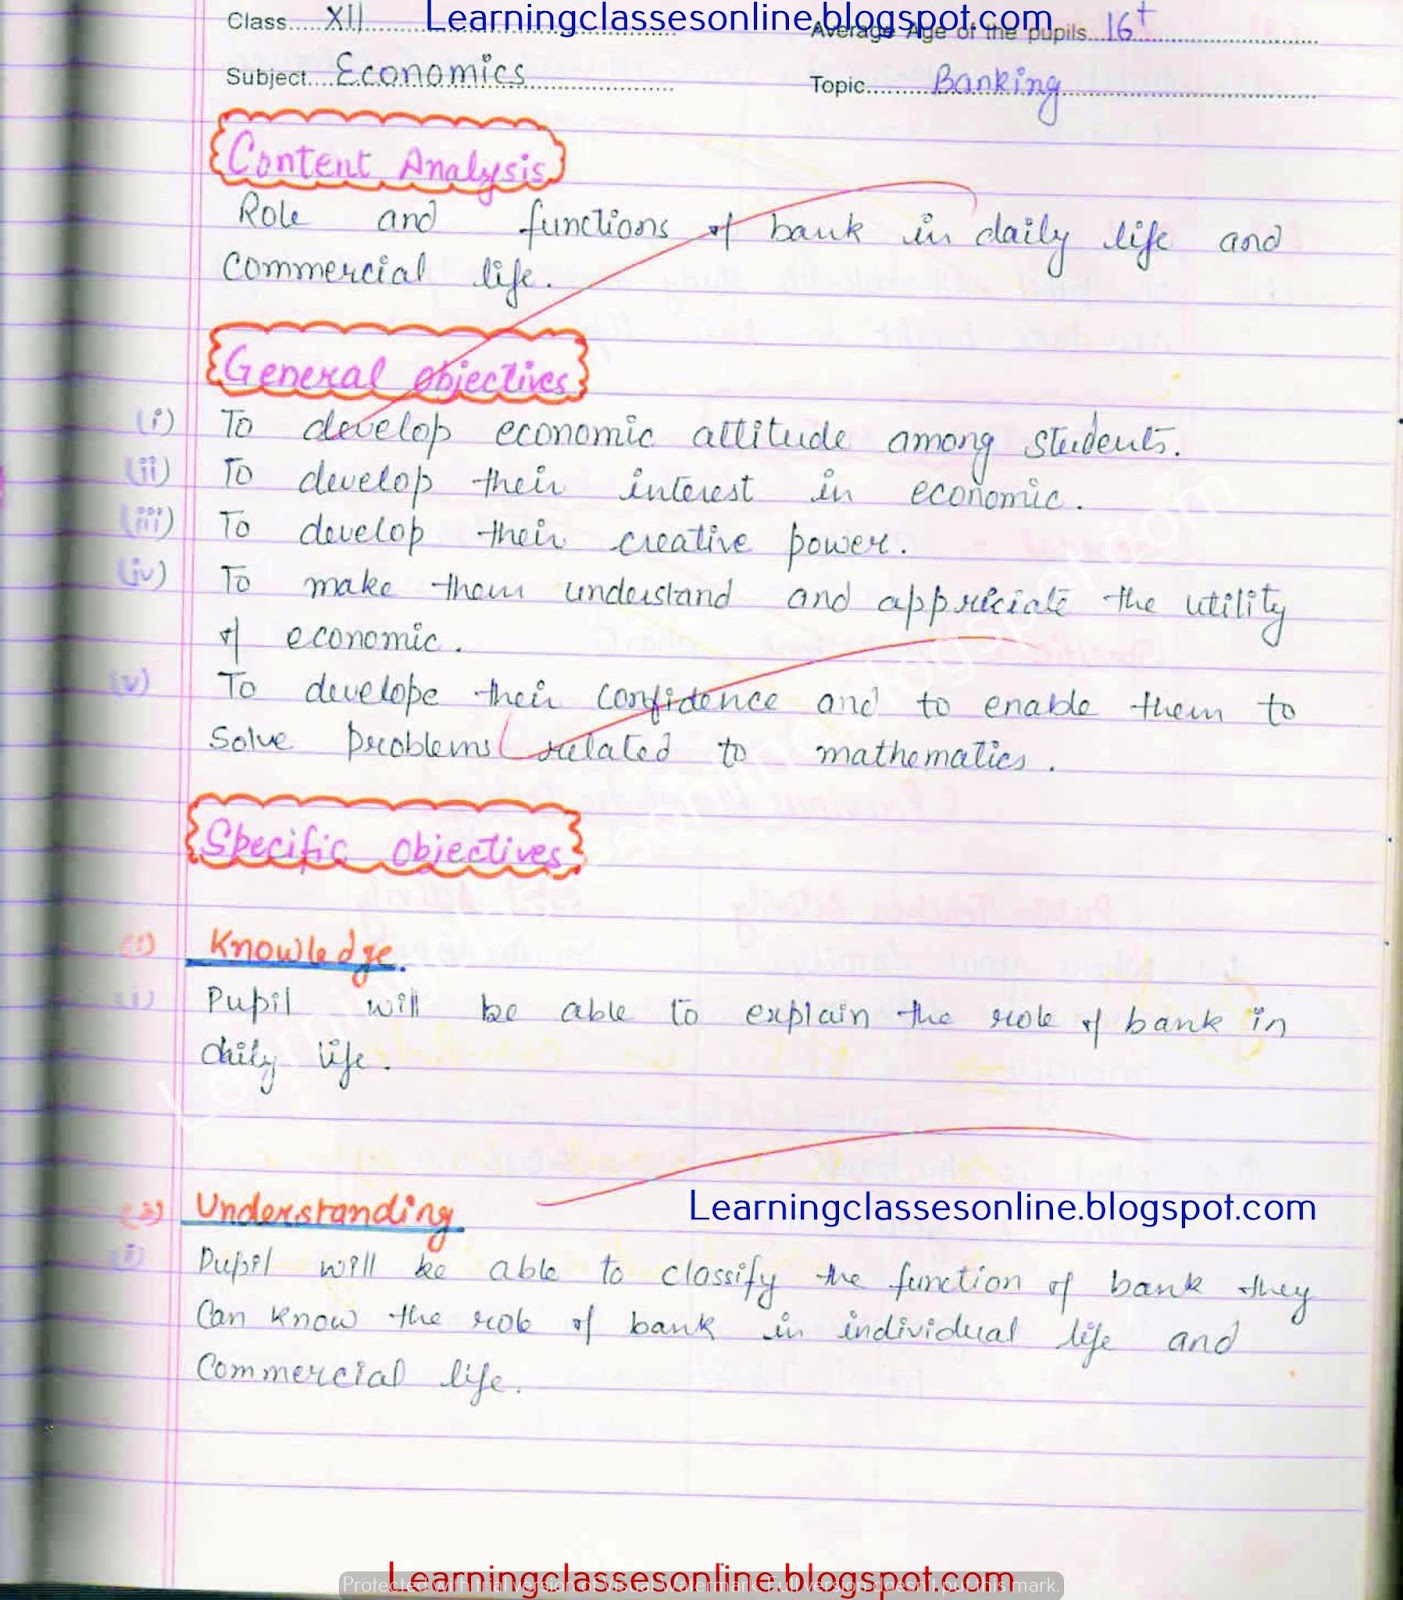 Class.....XII..... Learningclassesonline.blogspot.com Average Age of the pupils...16+
Subject....Economics Topic.........Banking
Content Analysis
Role and functions of bank in daily life and
commercial life.
General objectives
(i) To develop economic attitude among students.
(ii) To develop their interest in economic.
(iii) To develop their creative power.
(iv) To make them understand and appriciate the utility
of economic.
(v) To develope their confidence and to enable them to
solve problems related to mathematics.
Specific objectives
(1) Knowledge.
(i) Pupil will be able to explain the role of bank in
daily life.
(2) Understanding. Learningclassesonline.blogspot.com
(i) Pupil will be able to classify the function of bank they
Can know the role of bank in individual life and
Commercial life.
Learningclassesonline.blogspot.com
Protected with trial version of Visual Watermark. Full version doesn't put this mark.